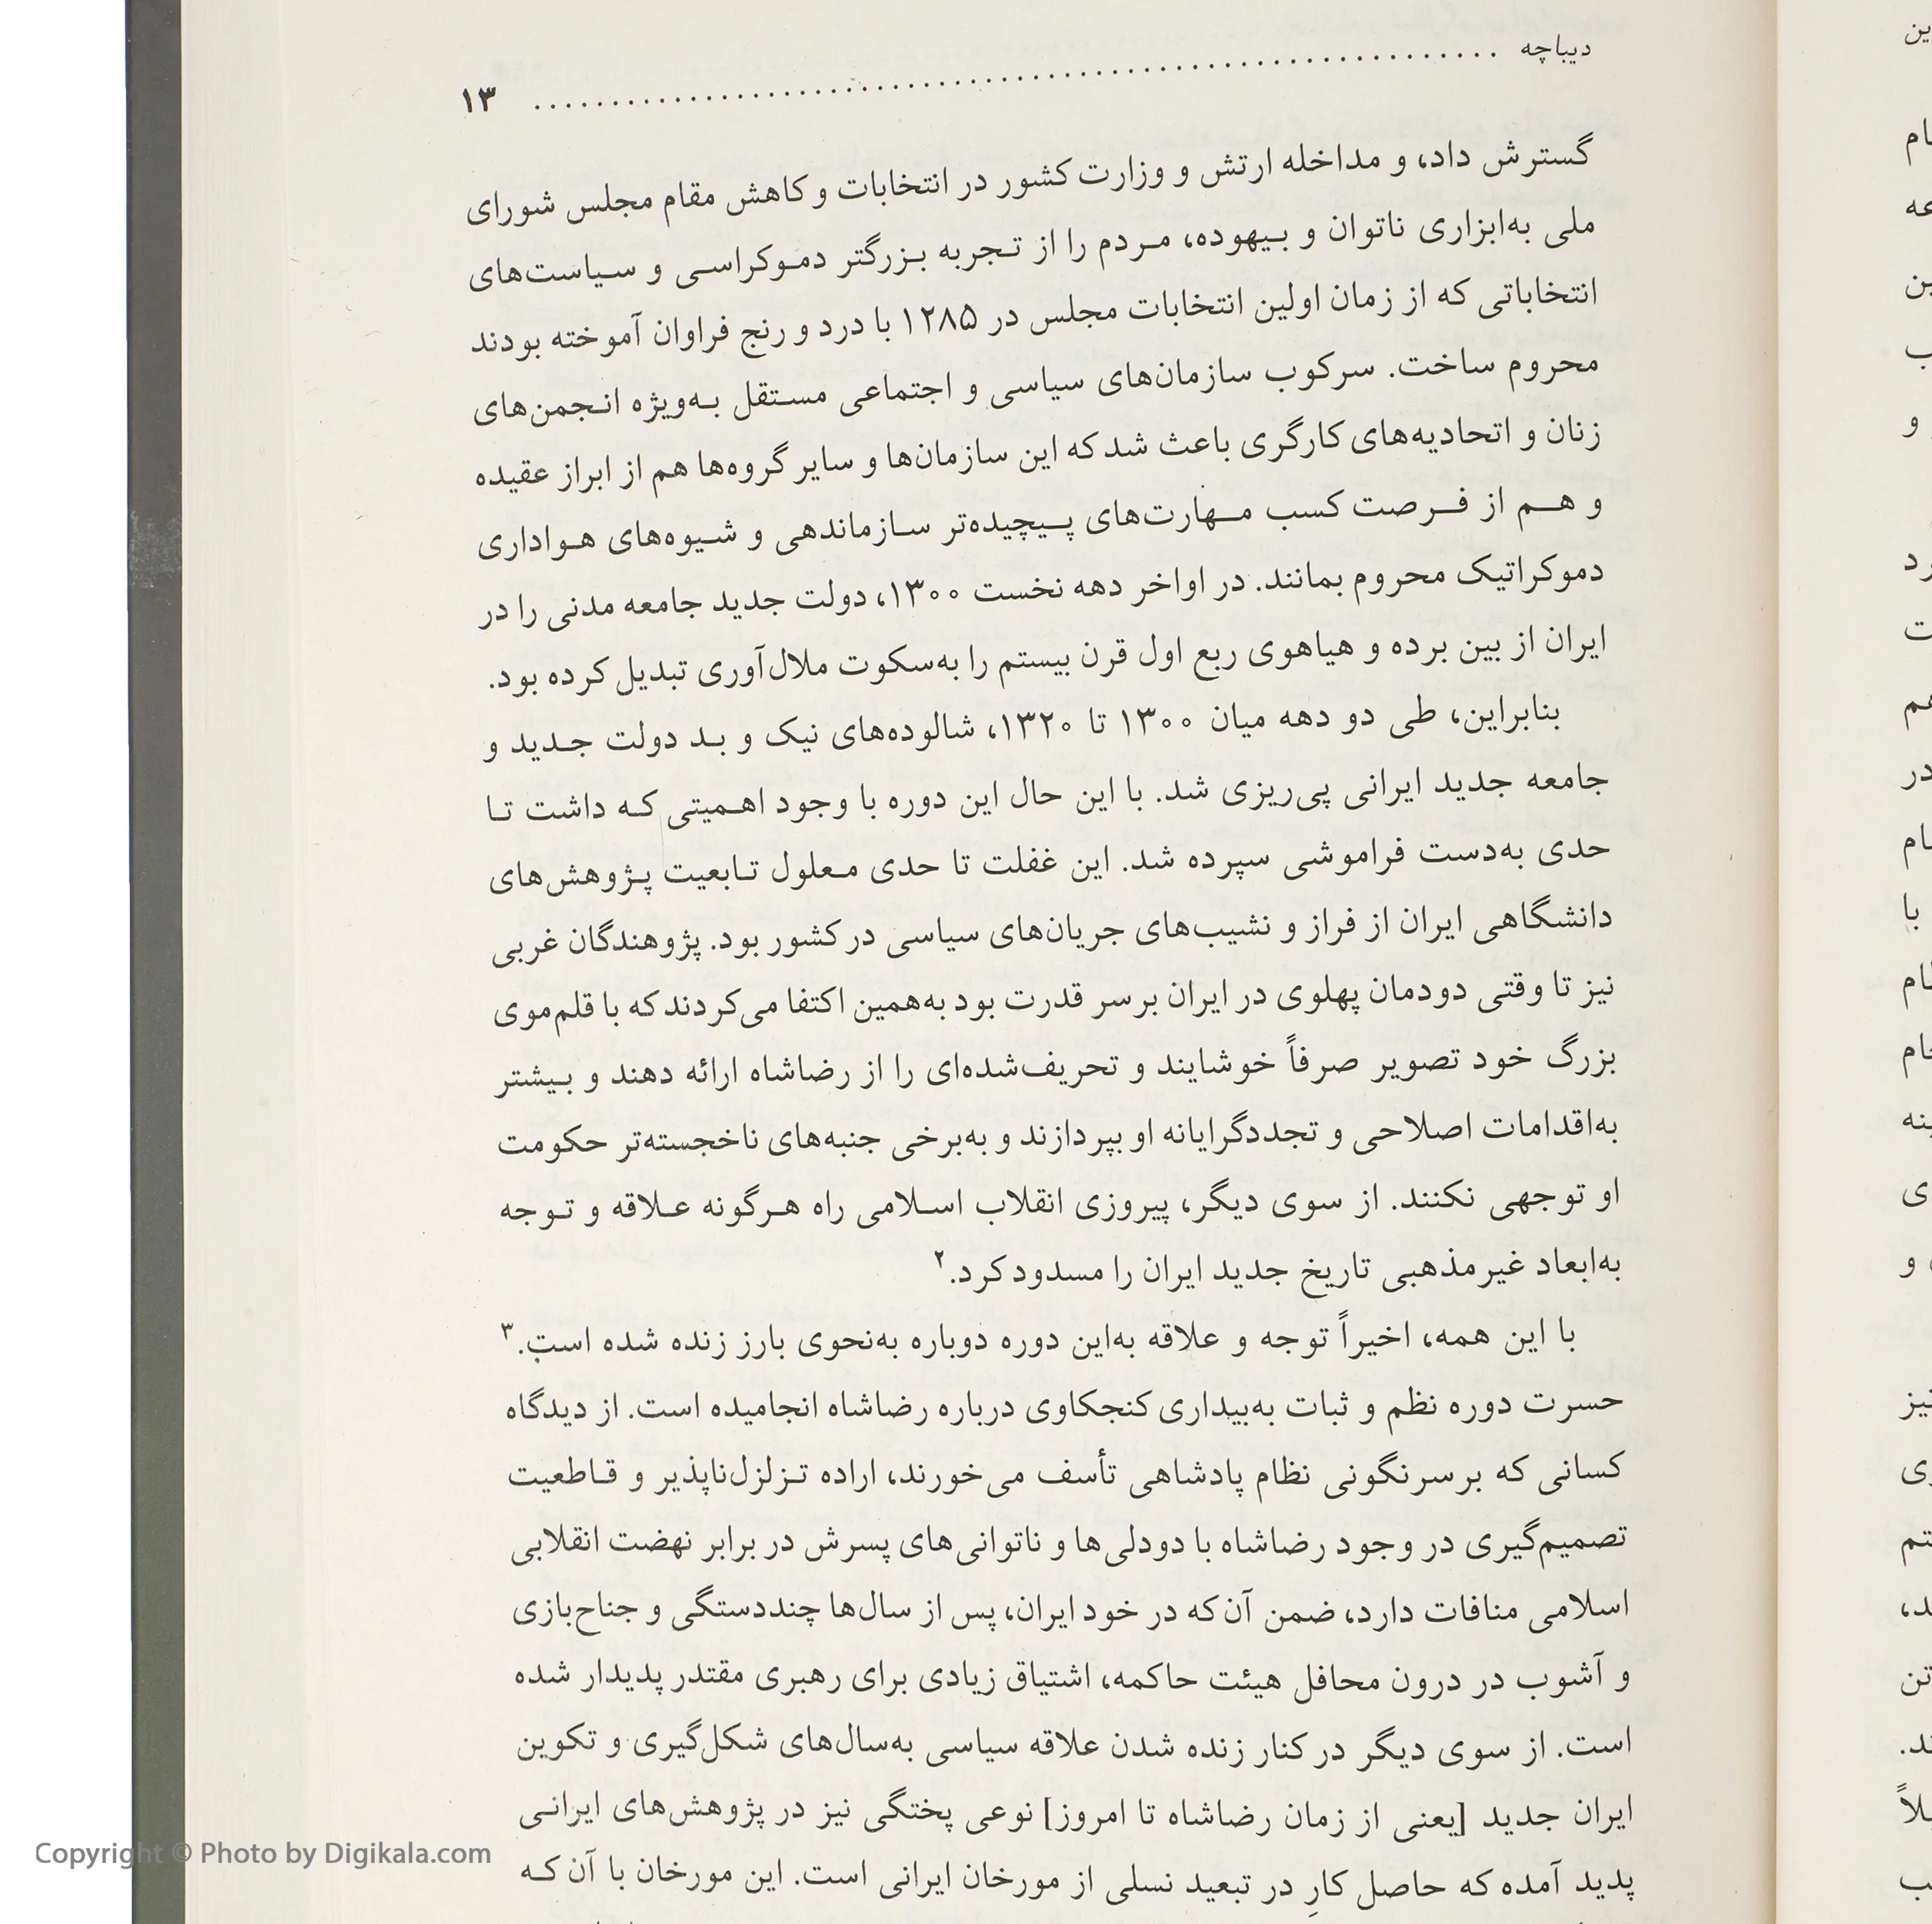 دیباچه ............................................................... ۱۳
گسترش داد، و مداخله ارتش و وزارت کشور در انتخابات و کاهش مقام مجلس شورای
ملی به‌ابزاری ناتوان و بیهوده، مردم را از تجربه بزرگتر دموکراسی و سیاست‌های
انتخاباتی که از زمان اولین انتخابات مجلس در ۱۲۸۵ با درد و رنج فراوان آموخته بودند
محروم ساخت. سرکوب سازمان‌های سیاسی و اجتماعی مستقل به‌ویژه انجمن‌های
زنان و اتحادیه‌های کارگری باعث شد که این سازمان‌ها و سایر گروه‌ها هم از ابراز عقیده
و هم از فرصت کسب مهارت‌های پیچیده‌تر سازماندهی و شیوه‌های هواداری
دموکراتیک محروم بمانند. در اواخر دهه نخست ۱۳۰۰، دولت جدید جامعه مدنی را در
ایران از بین برده و هیاهوی ربع اول قرن بیستم را به‌سکوت ملال‌آوری تبدیل کرده بود.
بنابراین، طی دو دهه میان ۱۳۰۰ تا ۱۳۲۰، شالوده‌های نیک و بد دولت جدید و
جامعه جدید ایرانی پی‌ریزی شد. با این حال این دوره با وجود اهمیتی که داشت تا
حدی به‌دست فراموشی سپرده شد. این غفلت تا حدی معلول تابعیت پژوهش‌های
دانشگاهی ایران از فراز و نشیب‌های جریان‌های سیاسی در کشور بود. پژوهندگان غربی
نیز تا وقتی دودمان پهلوی در ایران برسر قدرت بود به‌همین اکتفا می‌کردند که با قلم‌موی
بزرگ خود تصویر صرفاً خوشایند و تحریف‌شده‌ای را از رضاشاه ارائه دهند و بیشتر
به‌اقدامات اصلاحی و تجددگرایانه او بپردازند و به‌برخی جنبه‌های ناخجسته‌تر حکومت
او توجهی نکنند. از سوی دیگر، پیروزی انقلاب اسلامی راه هرگونه علاقه و توجه
به‌ابعاد غیرمذهبی تاریخ جدید ایران را مسدود کرد.۲
با این همه، اخیراً توجه و علاقه به‌این دوره دوباره به‌نحوی بارز زنده شده است.۳
حسرت دوره نظم و ثبات به‌بیداری کنجکاوی درباره رضاشاه انجامیده است. از دیدگاه
کسانی که برسرنگونی نظام پادشاهی تأسف می‌خورند، اراده تزلزل‌ناپذیر و قاطعیت
تصمیم‌گیری در وجود رضاشاه با دودلی‌ها و ناتوانی‌های پسرش در برابر نهضت انقلابی
اسلامی منافات دارد، ضمن آن‌که در خود ایران، پس از سال‌ها چنددستگی و جناح‌بازی
و آشوب در درون محافل هیئت حاکمه، اشتیاق زیادی برای رهبری مقتدر پدیدار شده
است. از سوی دیگر در کنار زنده شدن علاقه سیاسی به‌سال‌های شکل‌گیری و تکوین
ایران جدید [یعنی از زمان رضاشاه تا امروز] نوعی پختگی نیز در پژوهش‌های ایرانی
پدید آمده که حاصل کارِ در تبعید نسلی از مورخان ایرانی است. این مورخان با آن که
Copyright © Photo by Digikala.com